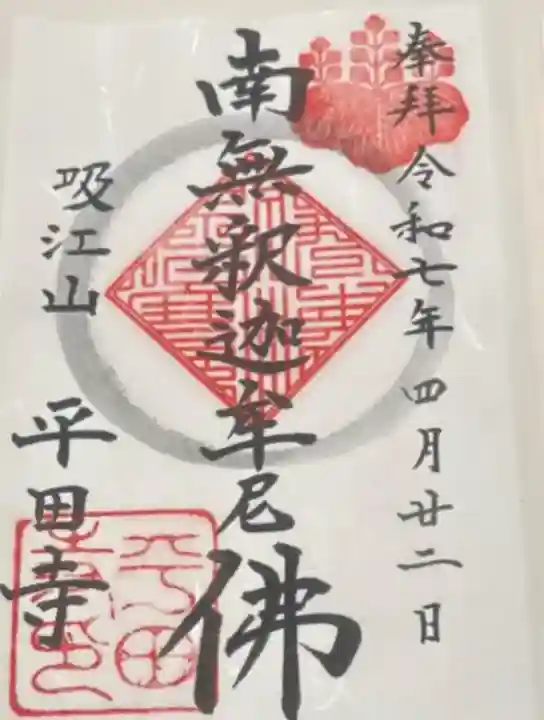 奉拝 令和七年四月廿二日
南無釈迦牟尼佛
吸江山 平田寺